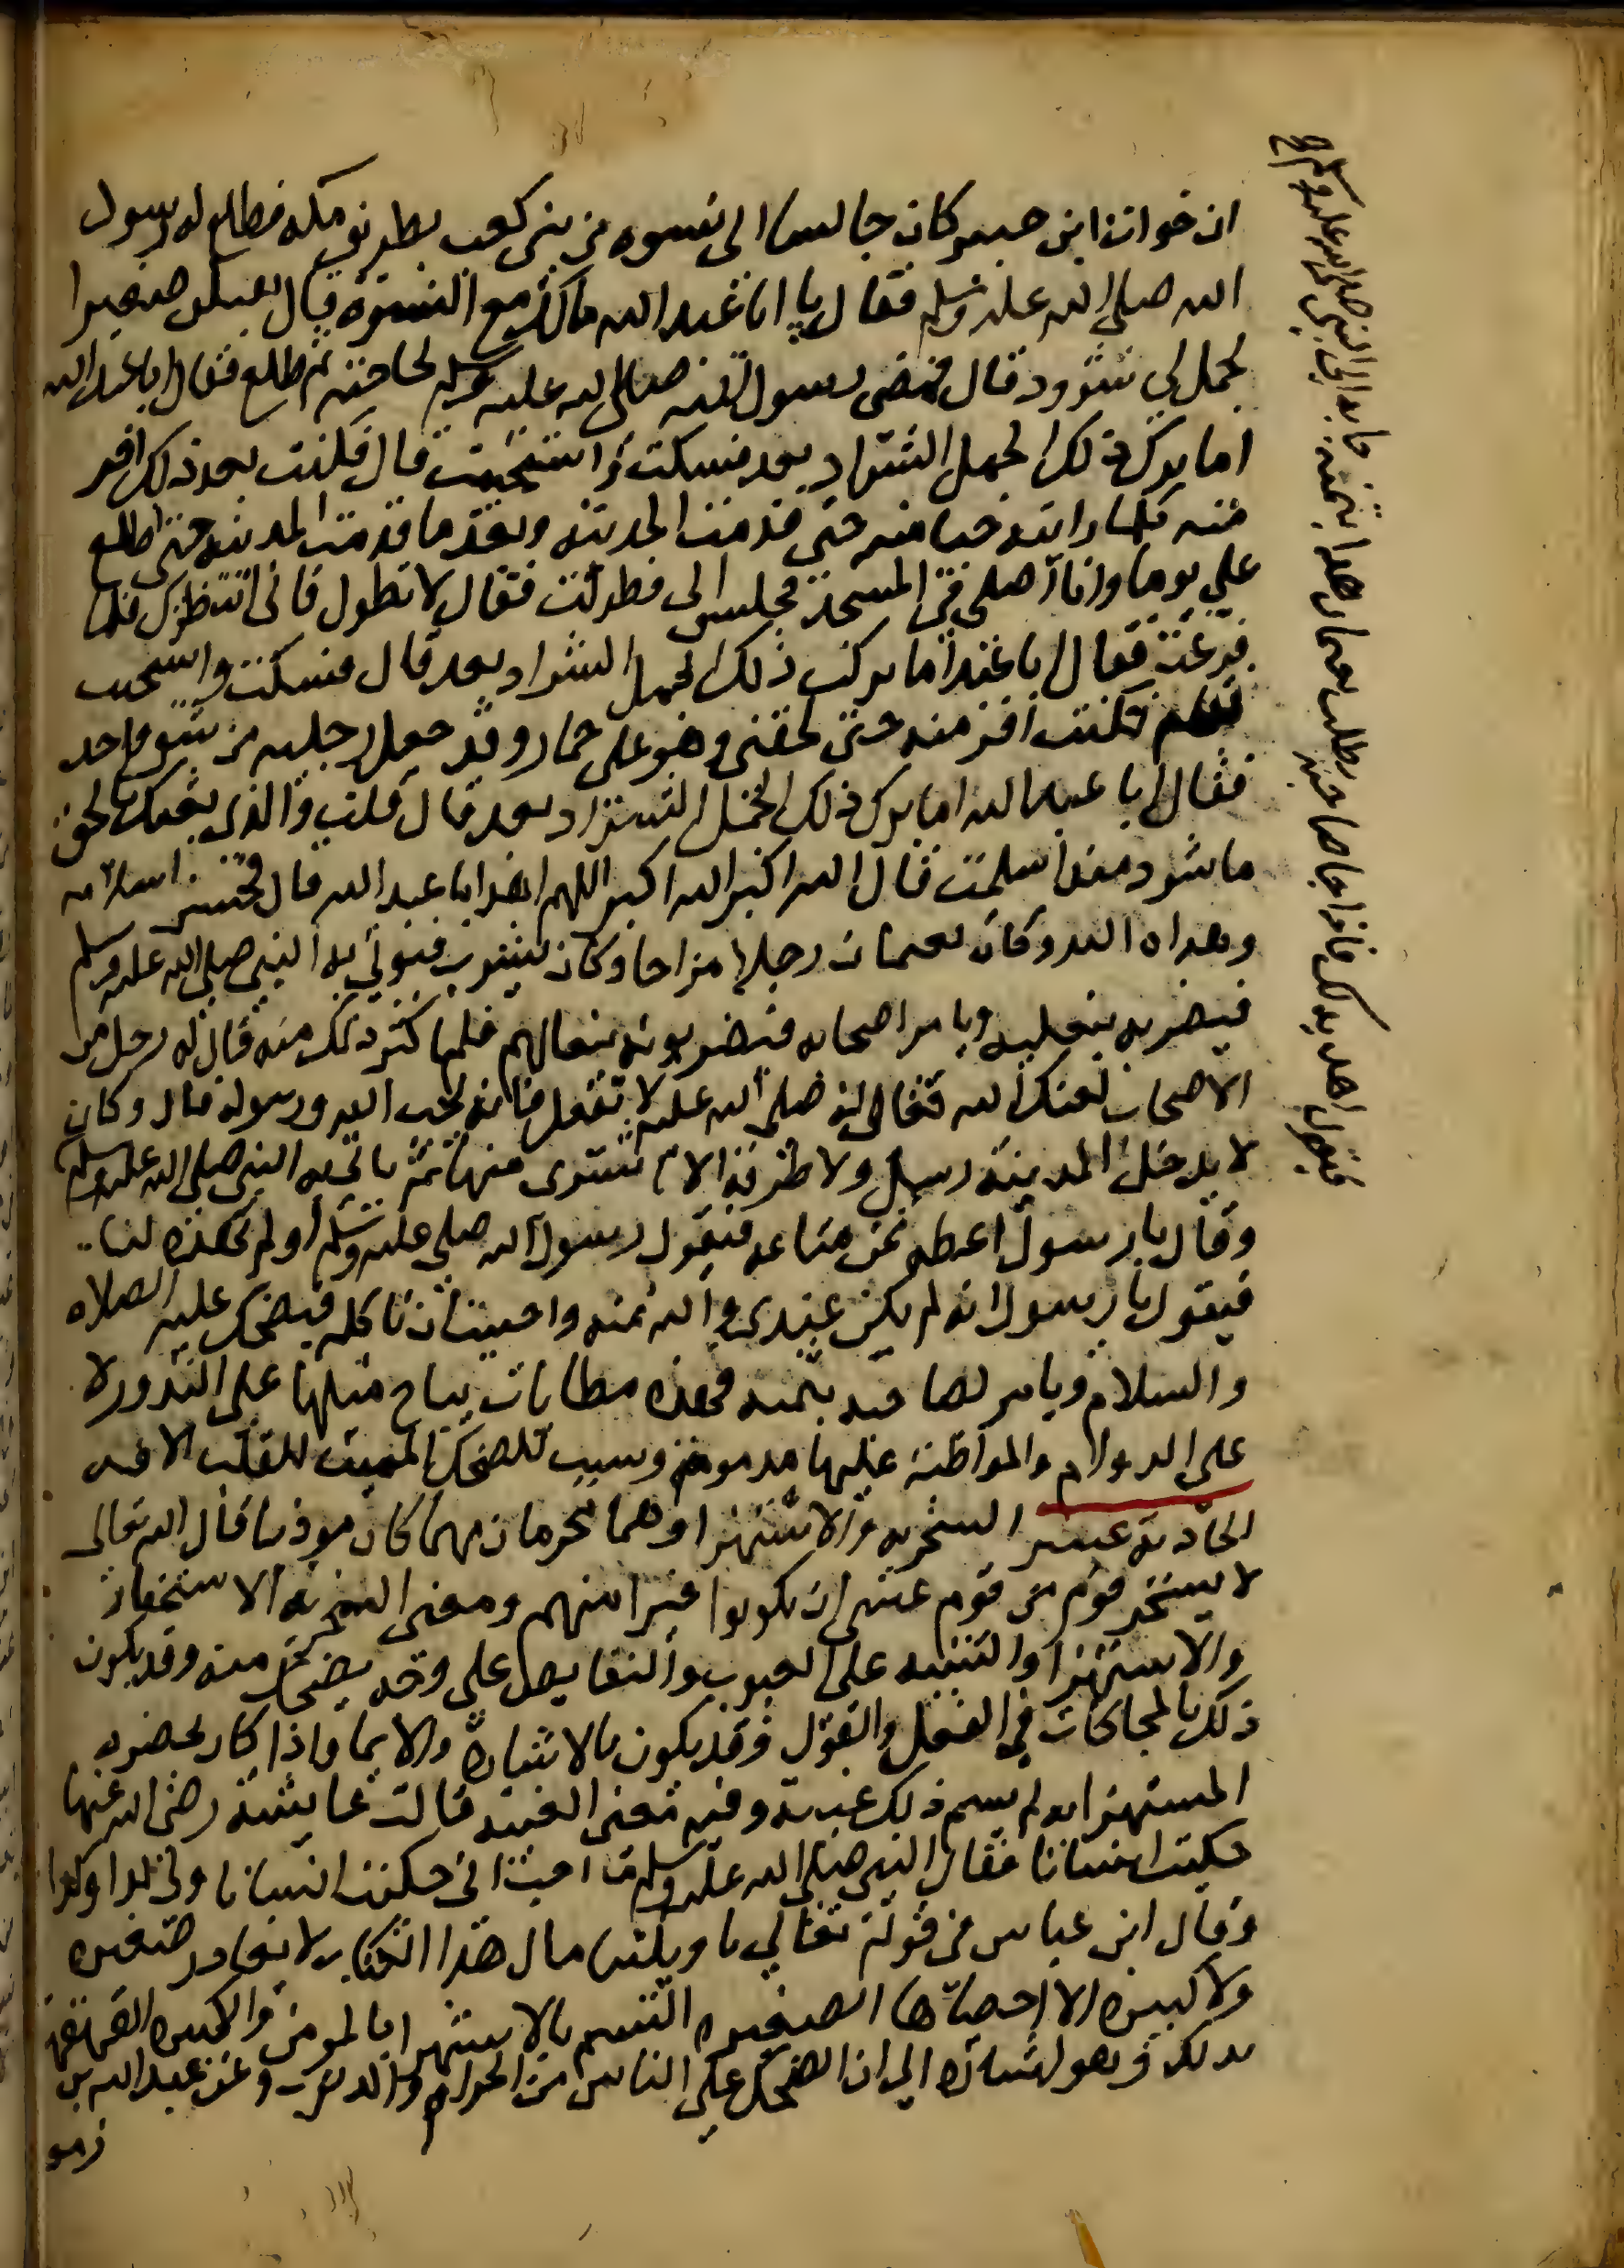 ان خوات ابن جبير كان جالسا الى نسوه من بنى كعب بطريق مكه فطلع له رسول
الله صلى الله عليه وسلم فقال يا ابا عبد الله مالك مع النسوة قال يفتلن ضفيرا
لجمل لي شرود قال فمضى رسول الله صلى الله عليه وسلم لحاجته ثم طلع فقال ابا عبد الله
اما ترك ذلك الجمل الشراد بعد فسكت واستحييت قال فكنت بعد ذلك افر
منه كلما رايته حيا منه حتى قدمت المدينه وبعد ما قدمت المدينه حتى اطلع
علي يوما وانا اصلى في المسجد فجلس الى فطولت فقال لا تطول فانى انتظرك فلما
فرغت فقال ابا عبد اما تركت ذلك الجمل الشراد بعد قال فسكت واستحييت
فقام فكنت افر منه حتى لحقنى وهو على حمار وقد جعل رجليه من شق واحد
فقال ابا عبد الله اما ترك ذلك الجمل الشراد بعد قال قلت والذى بعثك بالحق
ما شرد منذ اسلمت قال الله اكبر الله اكبر اللهم اهد ابا عبد الله قال فحسن اسلامه
وهداه الله وكان نعيمان رجلا مزاحا وكان يشرب فيوتى به النبي صلى الله عليه وسلم
فيضربه بنعليه ويامر اصحابه فيضربونه بنعالهم فلما كثر ذلك منه قال له رجل من
الاصحاب لعنك الله فقال له صلى الله عليه لا تفعل فانه يحب الله ورسوله قال وكان
لا يدخل المدينة رسل ولا طرفة الا اشترى منها ثم ياتى به النبي صلى الله عليه وسلم
فيقول اهديه لك فاذا جا صاحبه يطلب نعيمان بثمنه جا به الى النبي صلى الله عليه وسلم
وقال يا رسول اعطه ثمن متاعه فيقول رسول الله صلى عليه وسلم او لم تهده لنا
فيقول يا رسول انه لم يكن عندى والله ثمنه واحببت ان تاكله فيضحك عليه الصلاه
والسلام ويامر لصاحبه بثمنه فهذه مطايبات يباح مثلها على الندور لا
على الدوام والمواظبة عليها مذمومة وسبب للضحك المميت للقلب الافه
الحاديه عشر السخريه والاستهزا وهما محرمان مهما كان موذيا قال الله تعالى
لا يسخر قوم من قوم عسى ان يكونوا خيرا منهم ومعنى السخريه الاستحقار
والاستهزا والتنبيه على العيوب والنقايص على وجه يضحك منه وقد يكون
ذلك بالمحاكات في الفعل والقول وقد يكون بالاشارة والايما واذا كان بحضره
المستهزا به لم يسم ذلك غيبة وفيه معنى الغيبه قالت عايشة رضى الله عنها
حكيت انسانا فقال النبى صلى الله عليه وسلم ما احب انى حكيت انسانا ولى كذا وكذا
وقال ابن عباس في قوله تعالى يا ويلتنا مال هذا الكتاب لا يغادر صغيره
ولا كبيره الا احصاها الصغيره التبسم بالاستهزا بالمومن والكبيره القهقهة
بذلك وهو اشاره الى ان الضحك على الناس من الجرايم والذنوب وعن عبد الله بن
زمعه